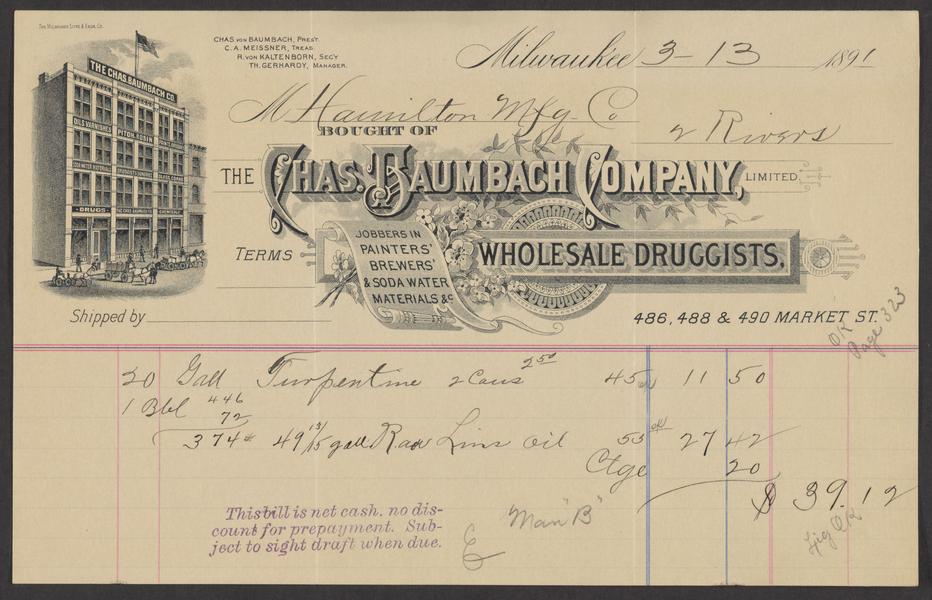 The Milwaukee Litho & Engr. Co.
CHAS. VON BAUMBACH, PRES'T.
C. A. MEISSNER, TREAS.
R. VON KALTENBORN, SEC'Y
TH. GERHARDY, MANAGER.
Milwaukee 3-13 1891
THE CHAS. BAUMBACH CO.
OILS VARNISHES
DRUGS
M Hamilton Mfg. Co
BOUGHT OF
2 Rivers
THE CHAS. BAUMBACH COMPANY, LIMITED.
TERMS
JOBBERS IN
PAINTERS'
BREWERS'
& SODA WATER
MATERIALS &c
WHOLESALE DRUGGISTS.
Shipped by
486, 488 & 490 MARKET ST.
OK
Page 323
20 Gall Turpentine 2 Cans 2 50 45 11 50
1 Bbl 446
72
374# 49 13/15 gall. Raw Lins Oil 55 27 42
Ctge 20
$ 39.12
This bill is net cash. no dis-
count for prepayment. Sub-
ject to sight draft when due.
"Man B"
Fig OK